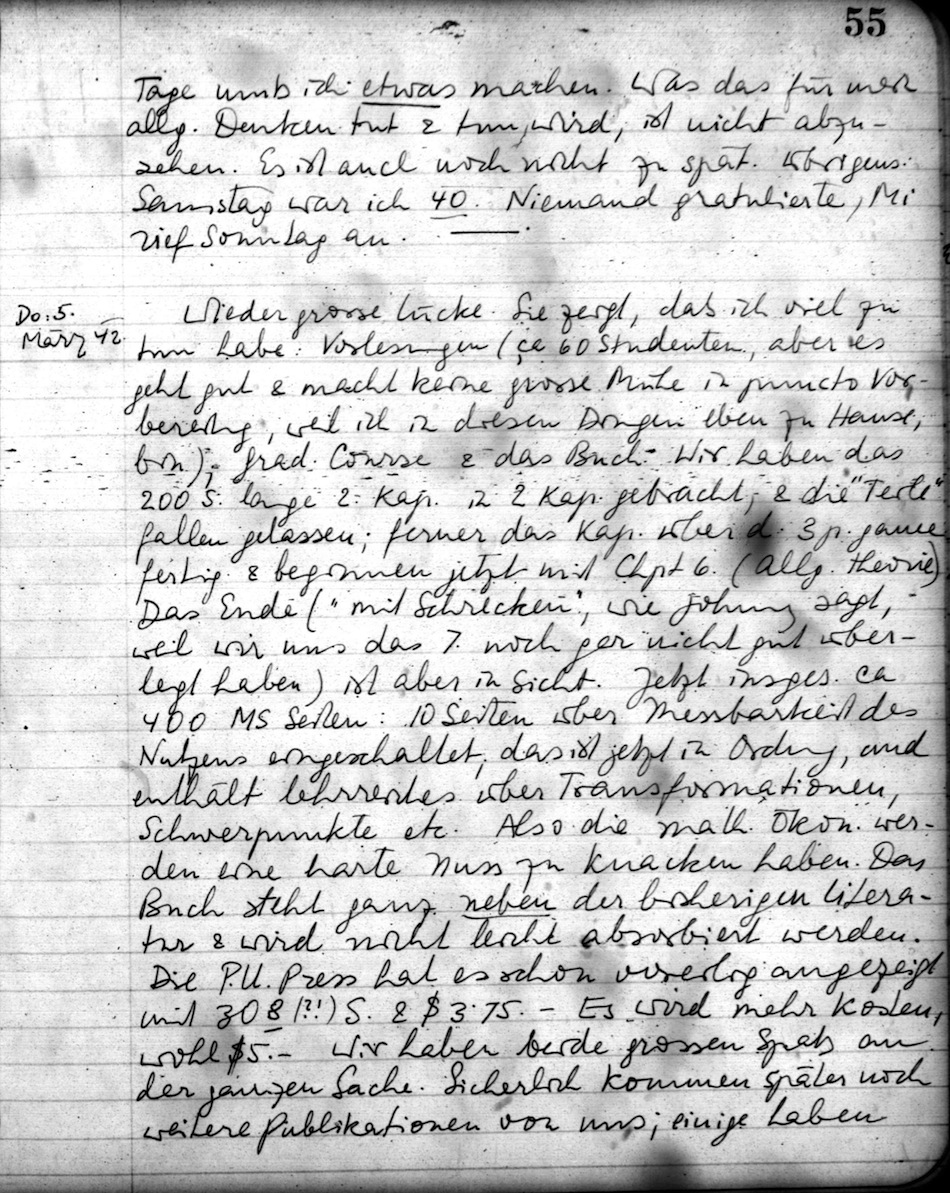 55
Tage muß ich etwas machen. Was das für mein
allg. Denken tut & tun wird, ist nicht abzu-
sehen. Es ist auch noch nicht zu spät. Übrigens:
Samstag war ich 40. Niemand gratulierte, Mi
rief Sonntag an.
Do: 5.
März 42
Wieder grosse Lücke. Sie zeigt, daß ich viel zu
tun habe: Vorlesungen (ca 60 Studenten, aber es
geht gut & macht keine grosse Mühe in puncto Vor-
bereitg, weil ich in diesen Dingen eben zu Hause,
bin); grad. Course & das Buch. Wir haben das
200 S. lange 2. Kap. in 2 Kap. gebracht, & die "Teile"
fallen gelassen; ferner das Kap. über d. 3 p. game
fertig & beginnen jetzt mit Chpt 6. (Allg. Theorie)
Das Ende ("mit Schrecken", wie Johnny sagt,
weil wir uns das 7. noch gar nicht gut über-
legt haben) ist aber in Sicht. Jetzt insges. ca
400 MS Seiten: 10 Seiten über Messbarkeit des
Nutzens eingeschaltet, das ist jetzt in Ordng, und
enthält lehrreiches über Transformationen,
Schwerpunkte etc. Also die math. Ökon. wer-
den eine harte Nuss zu knacken haben. Das
Buch steht ganz neben der bisherigen Litera-
tur & wird nicht leicht absorbiert werden.
Die P.U. Press hat es schon voreilig angezeigt
mit 308 (?!) S. & $3.75. – Es wird mehr kosten,
wohl $5.– Wir haben beide grossen Spaß an
der ganzen Sache. Sicherlich kommen später noch
weitere Publikationen von uns; einige haben